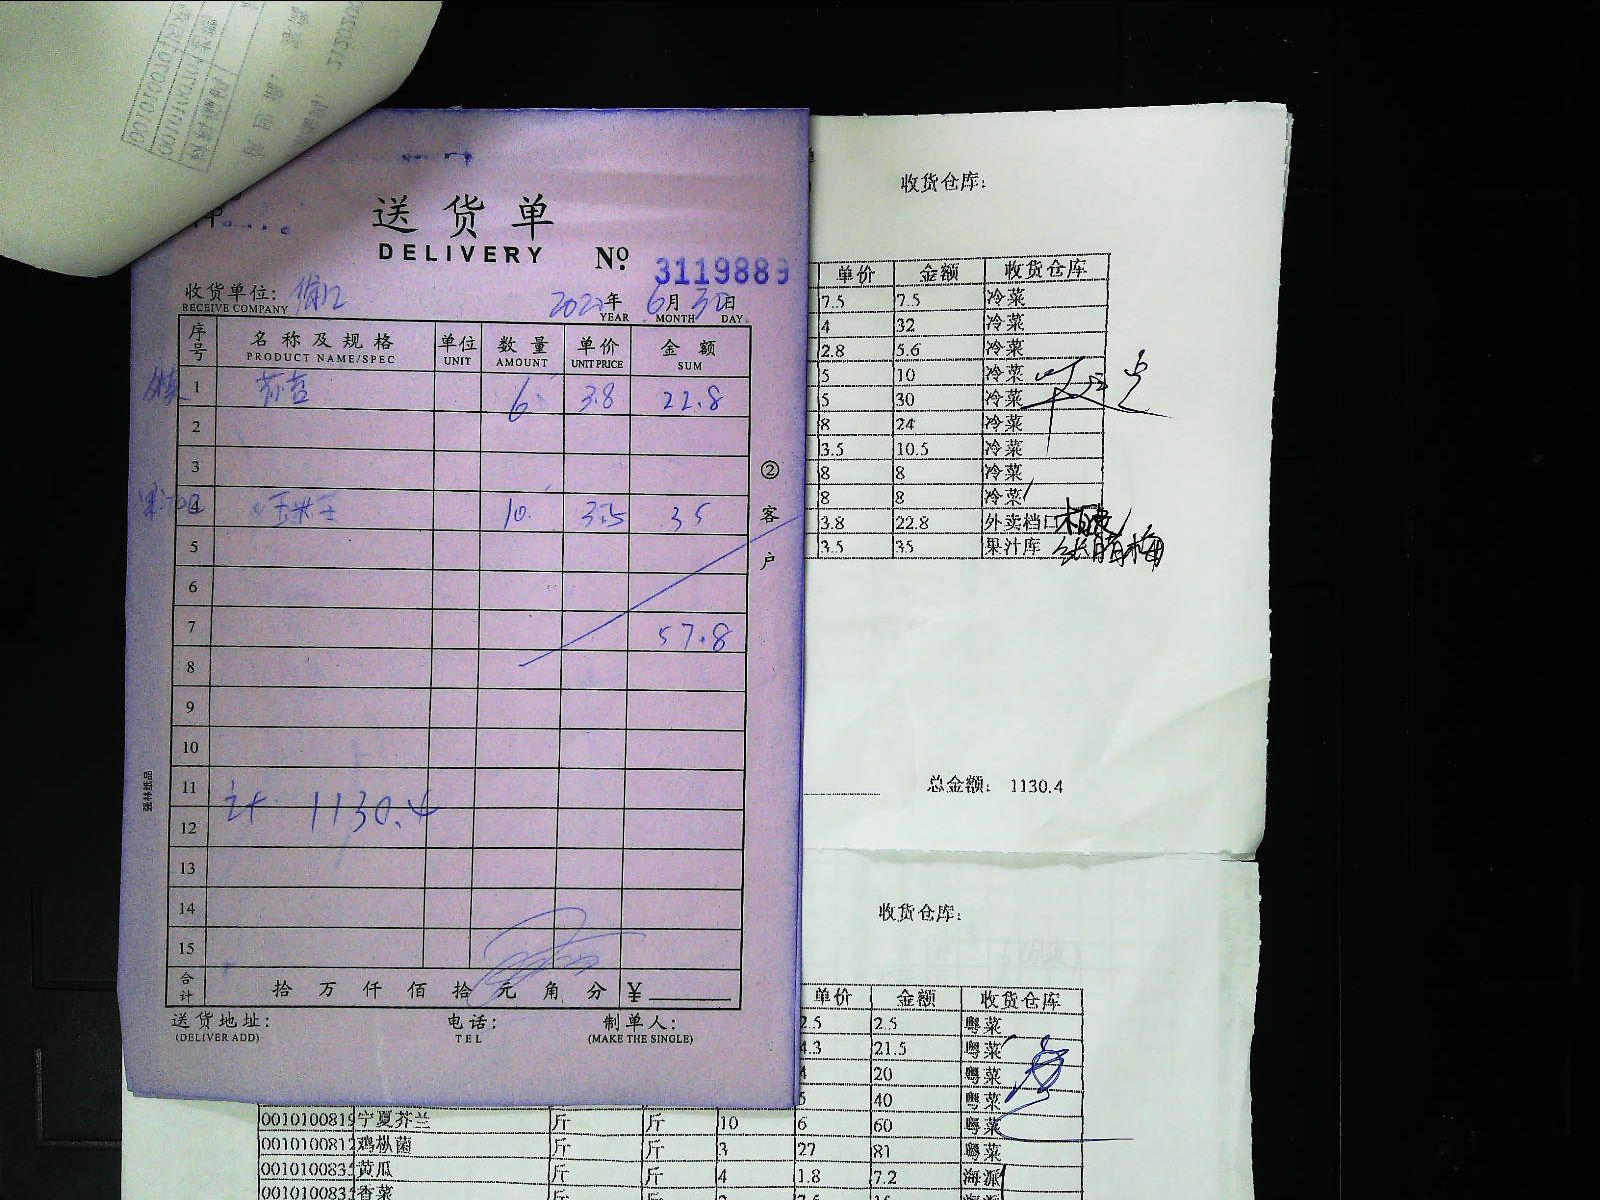 送货单
DELIVERY
№. 3119889
收货单位:
RECEIVE COMPANY
2022年 6月 30日
YEAR MONTH DAY
序号 名称及规格 单位 数量 单价 金额
PRODUCT NAME/SPEC UNIT AMOUNT UNIT PRICE SUM
1 6 3.8 22.8
2
3
4 玉米王 10 3.5 35
5
6
7 57.8
8
9
10
11
计 1130.4
12
13
14
15
合计 拾 万 仟 佰 拾 元 角 分 ¥
送货地址: 电话: 制单人:
(DELIVER ADD) TEL (MAKE THE SINGLE)
②客户
强林纸品
收货仓库:
单价 金额 收货仓库
7.5 7.5 冷菜
4 32 冷菜
2.8 5.6 冷菜
5 10 冷菜
5 30 冷菜
8 24 冷菜
3.5 10.5 冷菜
8 8 冷菜
8 8 冷菜
3.8 22.8 外卖档口
3.5 35 果汁库
总金额: 1130.4
收货仓库:
单价 金额 收货仓库
2.5 2.5 粤菜
4.3 21.5 粤菜
4 20 粤菜
5 40 粤菜
0010100819 宁夏芥兰 斤 斤 10 6 60 粤菜
001010081 鸡枞菌 斤 斤 3 27 81 粤菜
001010083 黄瓜 斤 斤 4 1.8 7.2 海派
001010083 香菜 斤 斤